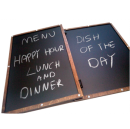 MENU
HAPPY HOUR
LUNCH
AND
DINNER
DISH
OF THE
DAY